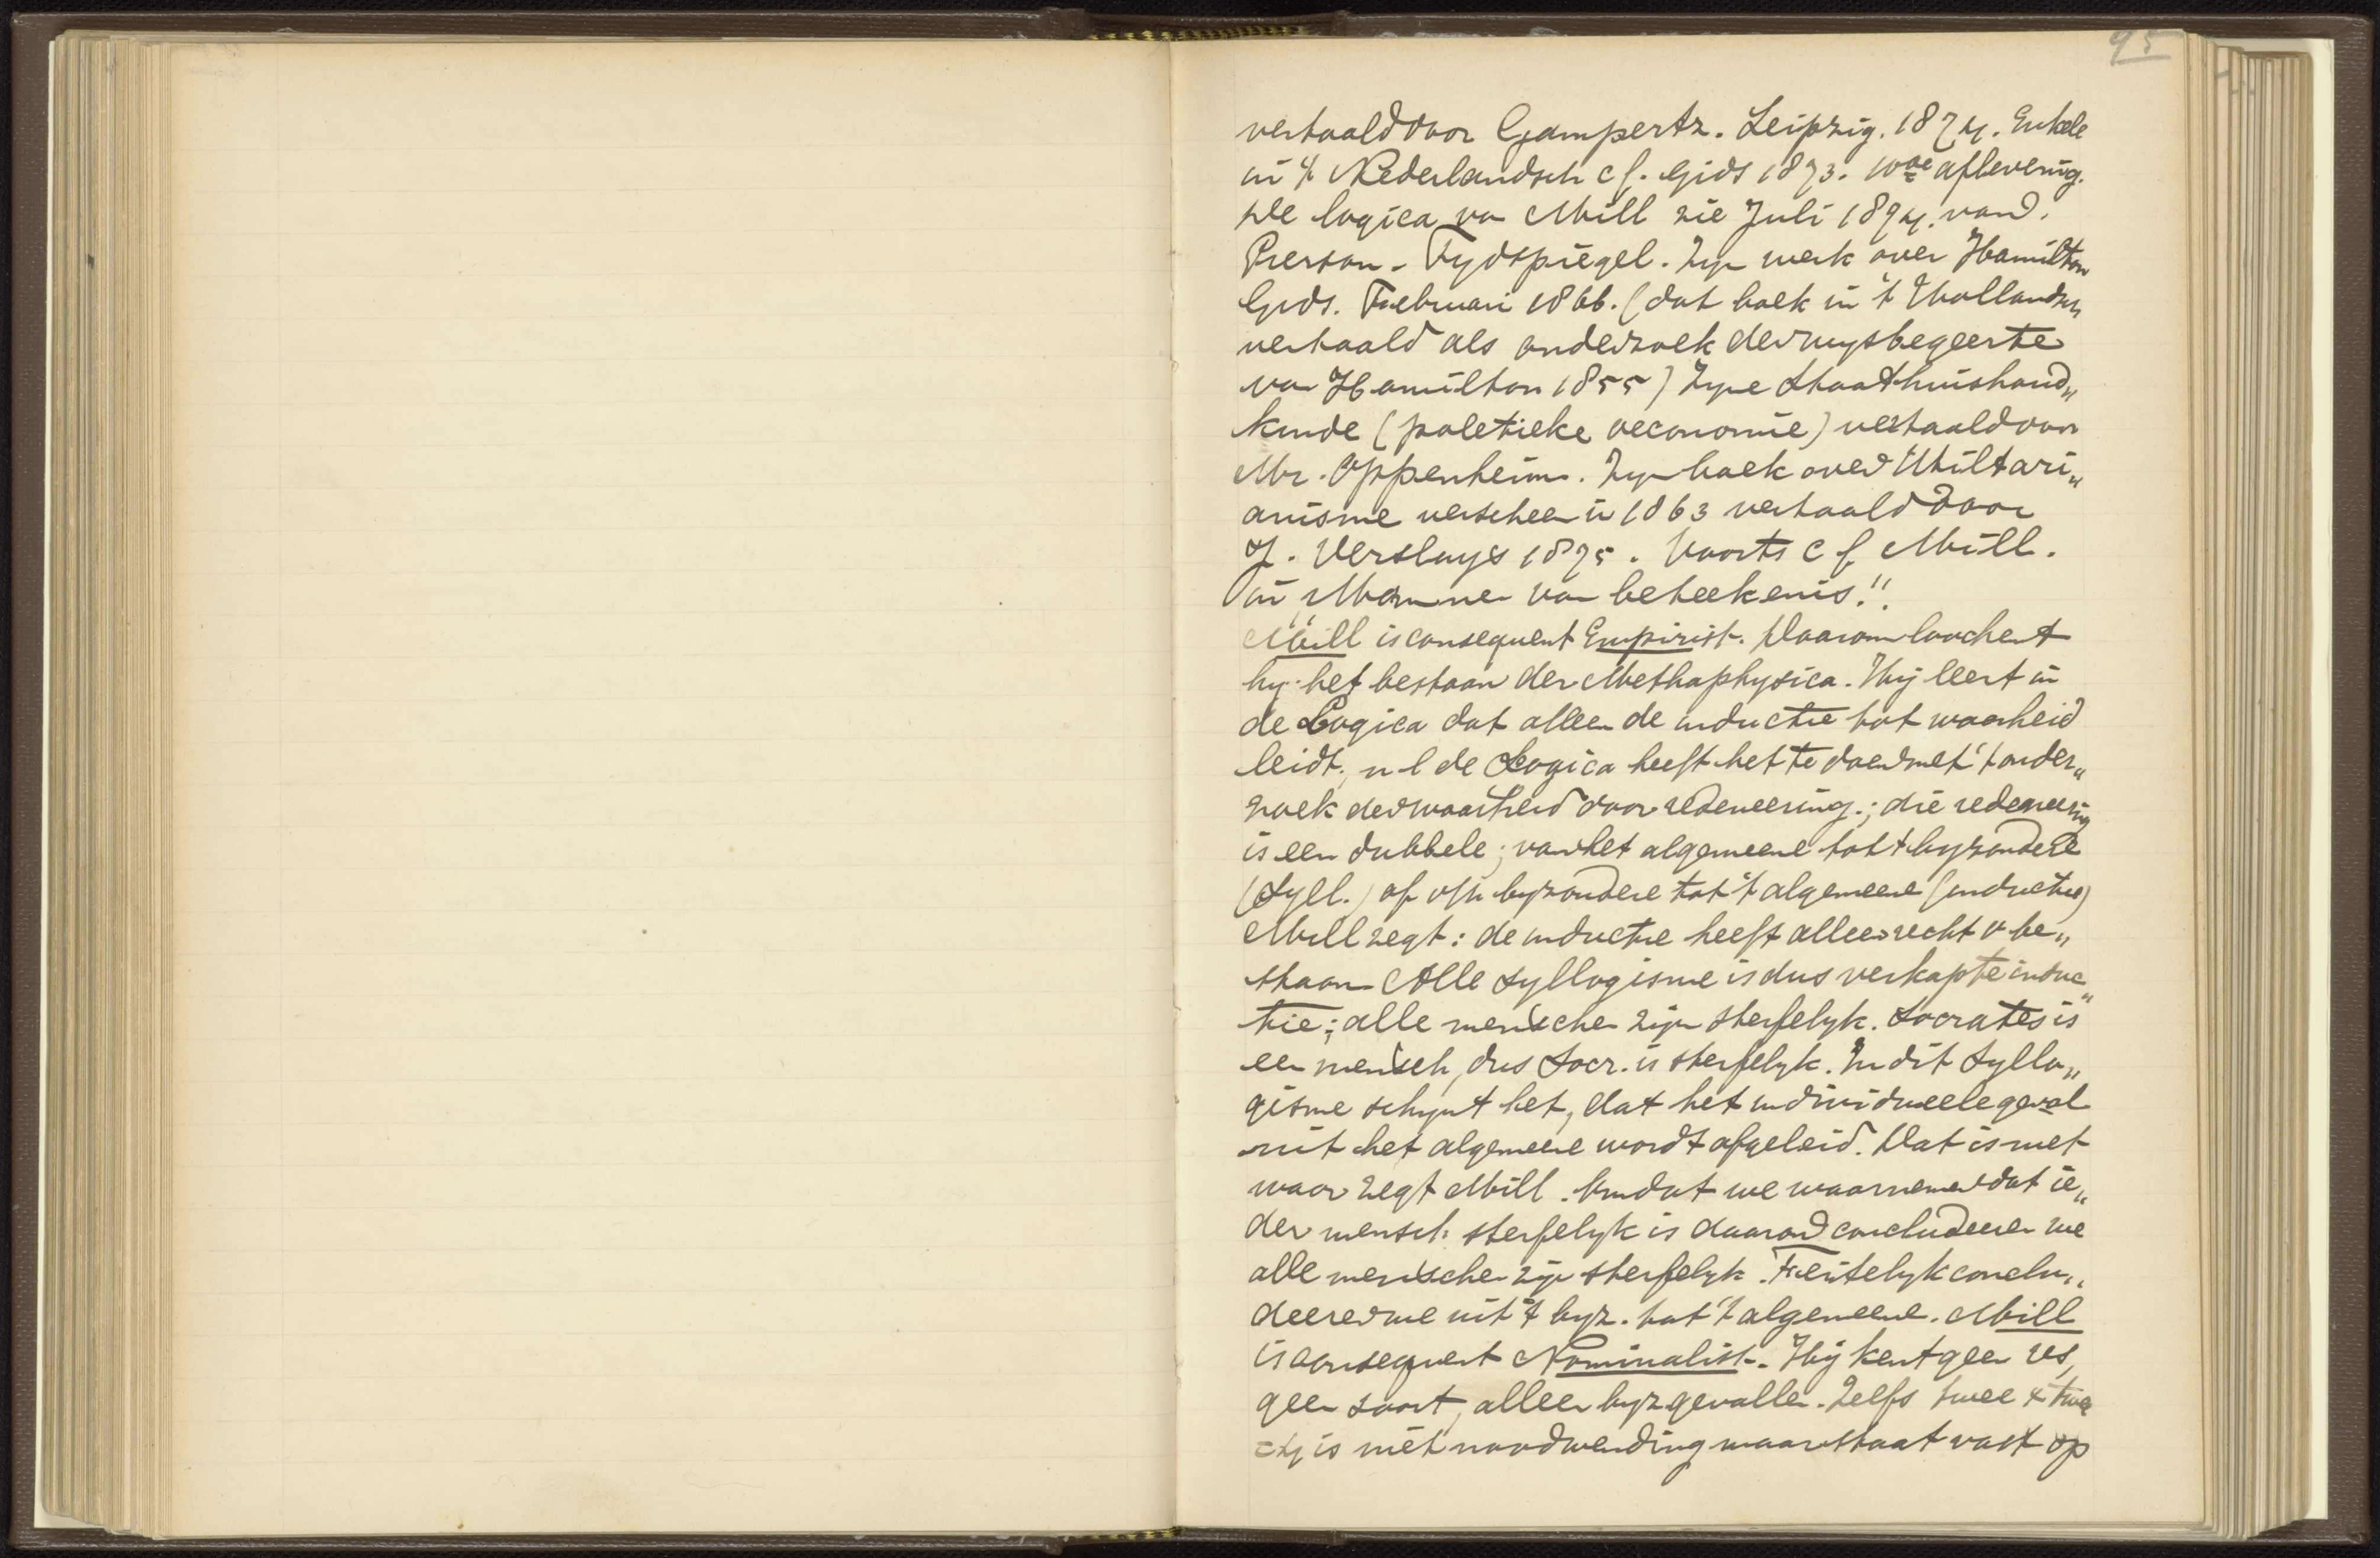 95
vertaald door Gampertz. Leipzig. 1874. Enkele
in 't Nederlandsch cf. Gids 1873. 10de aflevering.
De logica va Mill zie Juli 1874. van d.
Pierson - Tydspiegel. Zyn werk over Hamilton
Gids. Februari 1866. (dat boek in 't Hollandsch
vertaald als onderzoek der wysbegeerte
van Hamilton 1855) Zyne Staathuishoud„
kunde (poletieke oeconomie) vertaald door
Mr. Oppenheim. Zyn boek over Utiltari„
anisme verscheen in 1863 vertaald door
J. Versluys 1875. Voorts cf Mill.
in „Mannen van beteekenis."
Mill is consequent Empirist. Daarom loochent
hy het bestaan der Methaphysica. Hij leert in
de Logica dat alleen de inductie tot waarheid
leidt, n l de Logica heeft het te doen met 't onder„
zoek der waarheid door redeneering.; die redeneering
is een dubbele; van het algemeene tot 't byzondere
(Syll.) of v/h byzondere tot 't algemeene (inductie)
Mill zegt: de inductie heeft alleen recht v be„
staan Alle Syllogisme is dus verkapte induc„
tie; alle menschen zijn sterfelyk. Socrates is
een mensch, dus Socr. is sterfelyk. In dit Syllo„
gisme schynt het, dat het individueele geval
uit het algemeene wordt afgeleid. Dat is niet
waar zegt Mill. Omdat we waarnemen dat ie„
der mensch sterfelyk is daarom concludeeren we
alle menschen zijn sterfelyk. Feitelyk conclu„
deeren we uit 't byz. tot 't algemeene. Mill
is consequent Nominalist. Hij kent geen res,
geen soort, alleen byz gevallen. Zelfs twee x twee
= 4 is niet noodwending maar staat vast op